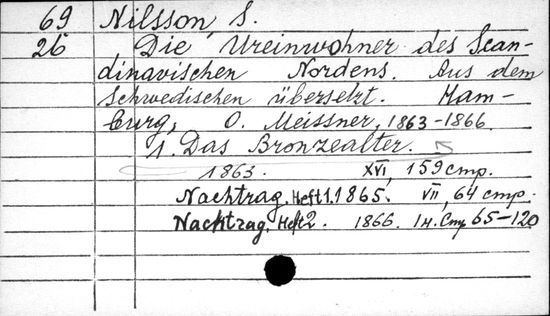 69 Nilsson, S.
26 Die Ureinwohner des Scan-
dinavischen Nordens. Aus dem
Schwedischen übersetzt. Ham-
burg, O. Meissner, 1863-1866.
1. Das Bronzealter.
1863. XVI, 159 cmp.
Nachtrag. Heft 1. 1865. VII, 64 cmp.
Nachtrag. Heft 2. 1866. 1 н. Cmp 65-120